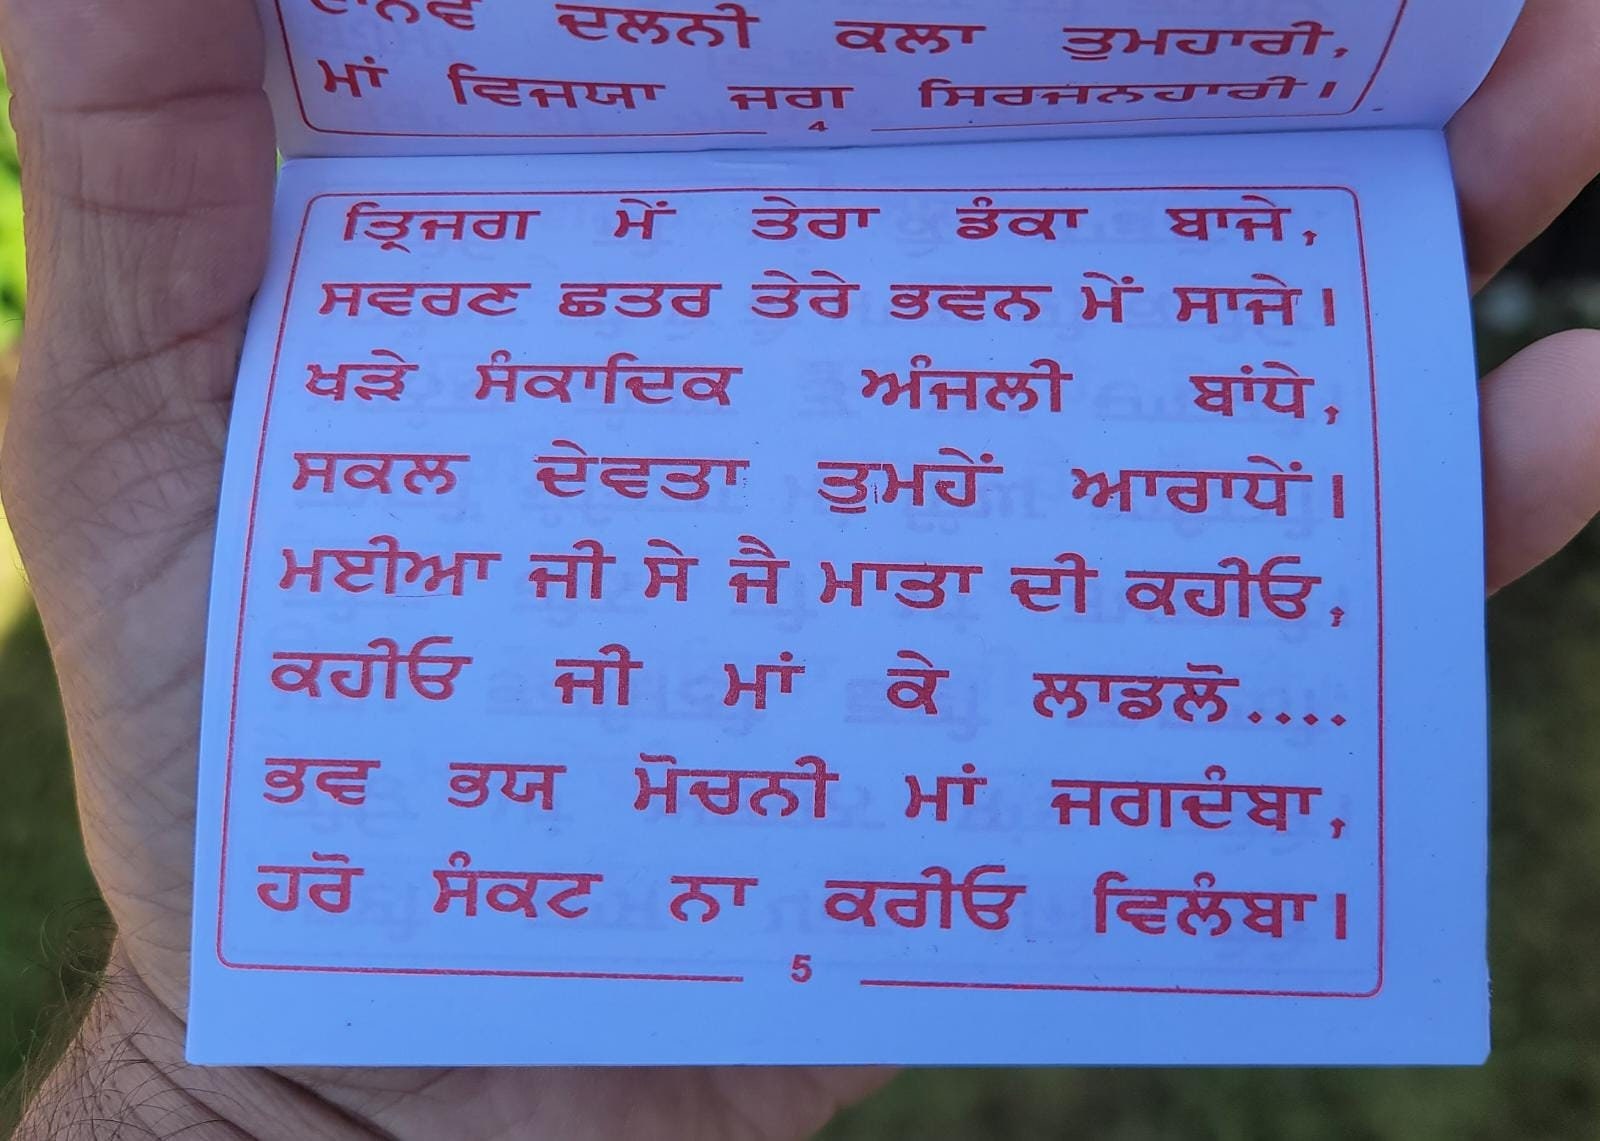 ਦਾਨਵ ਦਲਨੀ ਕਲਾ ਤੁਮਹਾਰੀ,
ਮਾਂ ਵਿਜਯਾ ਜਗ ਸਿਰਜਨਹਾਰੀ।
4
ਤ੍ਰਿਜਗ ਮੇਂ ਤੇਰਾ ਡੰਕਾ ਬਾਜੇ,
ਸਵਰਣ ਛਤਰ ਤੇਰੇ ਭਵਨ ਮੇਂ ਸਾਜੇ।
ਖੜੇ ਸੰਕਾਦਿਕ ਅੰਜਲੀ ਬਾਂਧੇ,
ਸਕਲ ਦੇਵਤਾ ਤੁਮਹੇਂ ਆਰਾਧੇਂ।
ਮਈਆ ਜੀ ਸੇ ਜੈ ਮਾਤਾ ਦੀ ਕਹੀਓ,
ਕਹੀਓ ਜੀ ਮਾਂ ਕੇ ਲਾਡਲੋ....
ਭਵ ਭਯ ਮੋਚਨੀ ਮਾਂ ਜਗਦੰਬਾ,
ਹਰੋ ਸੰਕਟ ਨਾ ਕਰੀਓ ਵਿਲੰਬਾ।
5